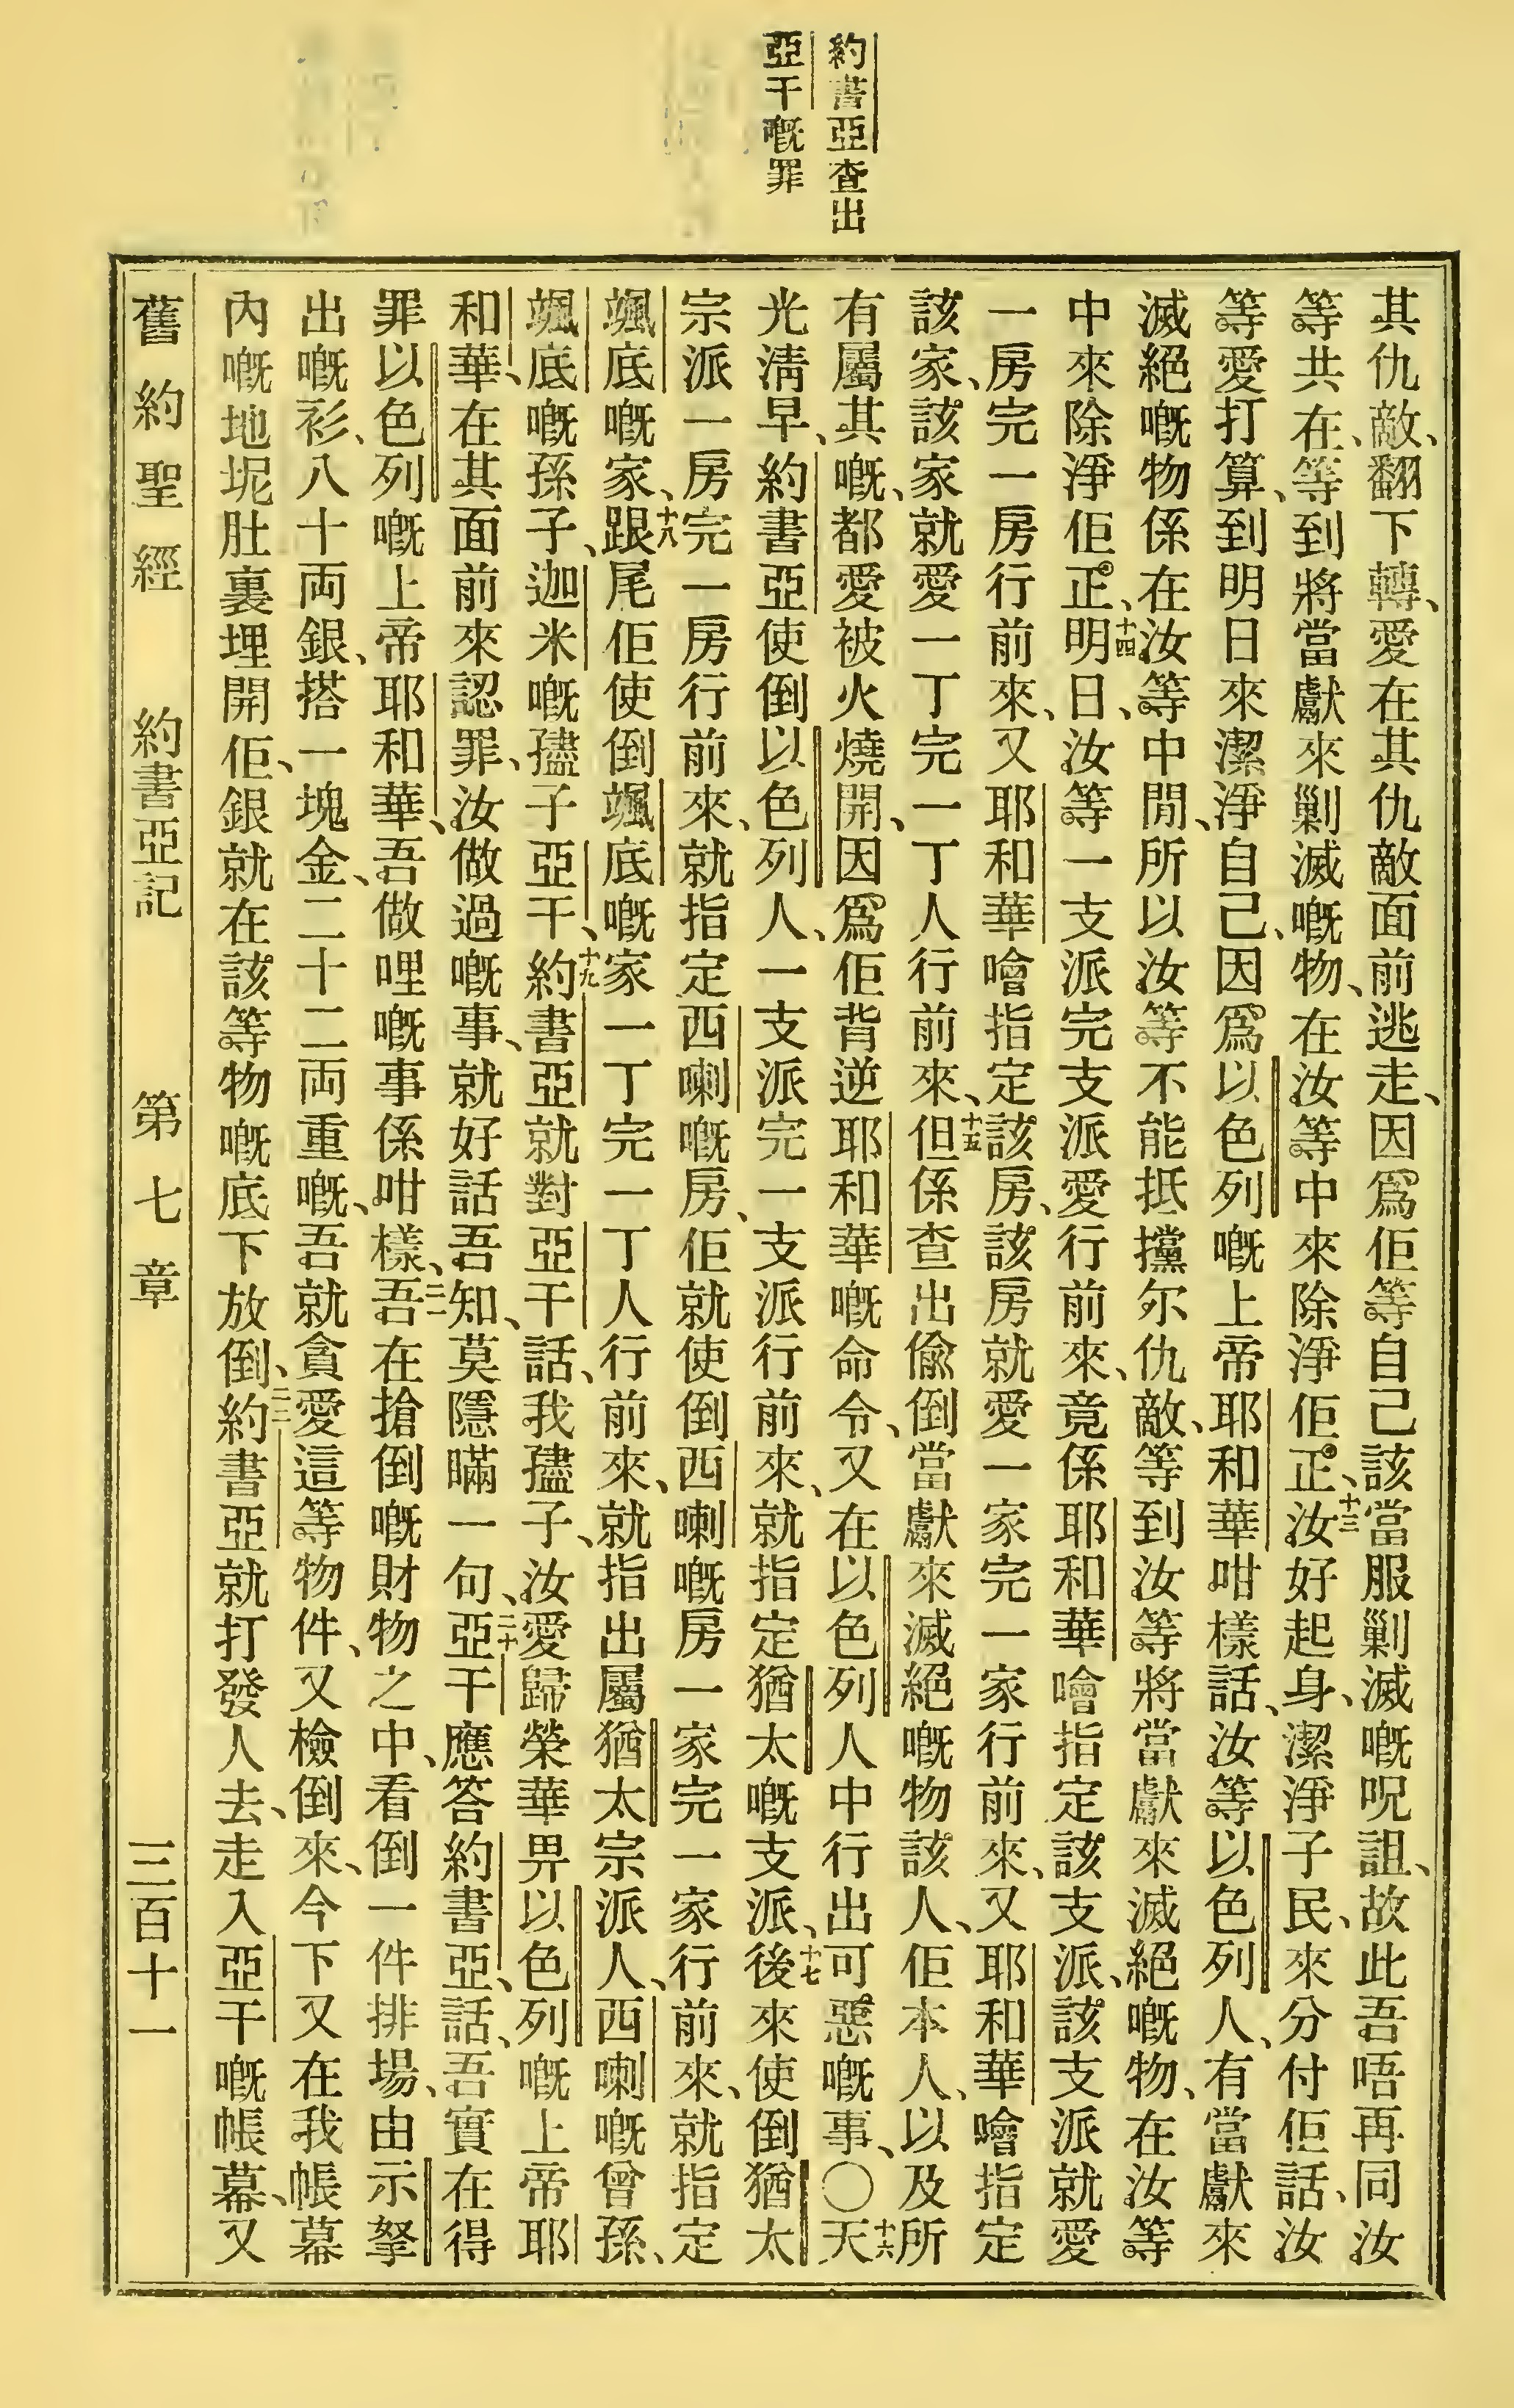 約書亞查出
亞干嘅罪
其仇敵、翻下轉、愛在其仇敵面前逃走、因爲佢等自己該當服剿滅嘅呪詛、故此吾唔再同汝
等共在、等到將當獻來剿滅嘅物、在汝等中來除淨佢正、十三汝好起身、潔淨子民、來分付佢話、汝
等愛打算、到明日來潔淨自己、因爲以色列嘅上帝耶和華咁樣話、汝等以色列人、有當獻來
滅絕嘅物係在汝等中閒、所以汝等不能抵攩尔仇敵、等到汝等將當獻來滅絕嘅物、在汝等
中來除淨佢正、十四明日、汝等一支派完支派愛行前來、竟係耶和華噲指定該支派、該支派就愛
一房完一房行前來、又耶和華噲指定該房、該房就愛一家完一家行前來、又耶和華噲指定
該家、該家就愛一丁完一丁人行前來、十五但係查出偸倒當獻來滅絕嘅物該人、佢本人、以及所
有屬其嘅、都愛被火燒開、因爲佢背逆耶和華嘅命令、又在以色列人中行出可惡嘅事、〇十六天
光淸早、約書亞使倒以色列人、一支派完一支派行前來、就指定猶太嘅支派、十七後來使倒猶太
宗派一房完一房行前來、就指定西喇嘅房、佢就使倒西喇嘅房一家完一家行前來、就指定
颯底嘅家、十八跟尾佢使倒颯底嘅家一丁完一丁人行前來、就指出屬猶太宗派人、西喇嘅曾孫、
颯底嘅孫子、迦米嘅孻子亞干、十九約書亞就對亞干話、我孻子、汝愛歸榮華畀以色列嘅上帝耶
和華、在其面前來認罪、汝做過嘅事、就好話吾知、莫隱瞞一句、二十亞干應答約書亞話、吾實在得
罪以色列嘅上帝耶和華、吾做哩嘅事係咁樣、二一吾在搶倒嘅財物之中、看倒一件排場、由示拏
出嘅衫、八十両銀、搭一塊金、二十二両重嘅、吾就貪愛這等物件、又檢倒來、今下又在我帳幕
內嘅地坭肚裏埋開佢、銀就在該等物嘅底下放倒、二二約書亞就打發人去、走入亞干嘅帳幕、又
舊約聖經　約書亞記　第七章　三百十一